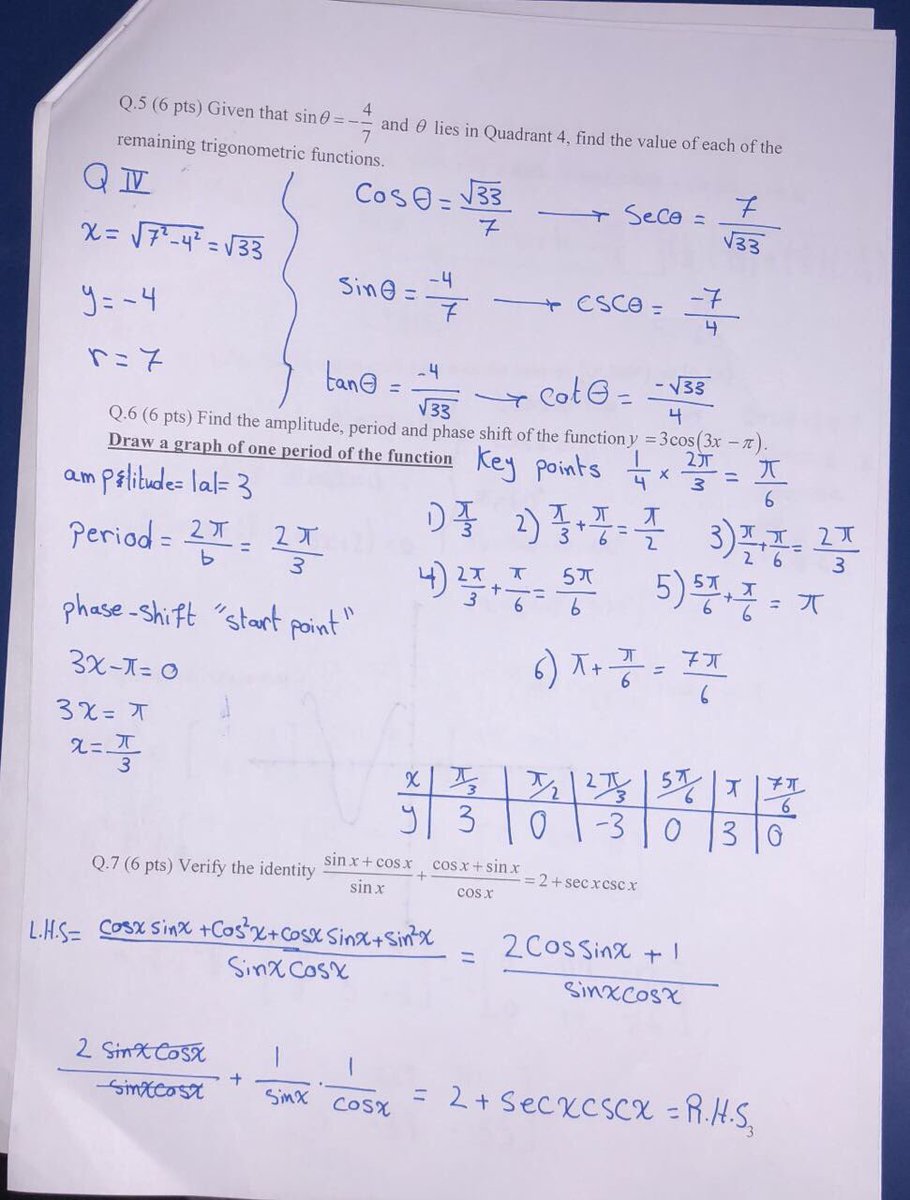 Q.5 (6 pts) Given that sin θ = -4/7 and θ lies in Quadrant 4, find the value of each of the
remaining trigonometric functions.
Q IV
x = √(7²-4²) = √33
y = -4
r = 7
Cos θ = √33/7 → Sec θ = 7/√33
Sin θ = -4/7 → CSC θ = -7/4
tan θ = -4/√33 → Cot θ = -√33/4
Q.6 (6 pts) Find the amplitude, period and phase shift of the function y = 3cos(3x - π).
Draw a graph of one period of the function
amplitude = |a| = 3
Period = 2π/b = 2π/3
phase-shift "start point"
3x-π=0
3x = π
x = π/3
Key points 1/4 × 2π/3 = π/6
1) π/3 2) π/3 + π/6 = π/2 3) π/2 + π/6 = 2π/3
4) 2π/3 + π/6 = 5π/6 5) 5π/6 + π/6 = π
6) π + π/6 = 7π/6
x | π/3 | π/2 | 2π/3 | 5π/6 | π | 7π/6
y | 3 | 0 | -3 | 0 | 3 | 0
Q.7 (6 pts) Verify the identity (sin x + cos x)/sin x + (cos x + sin x)/cos x = 2 + sec x csc x
L.H.S = (Cosx Sinx + Cos²x + Cosx Sinx + Sin²x)/(Sinx Cosx) = (2 Cos Sinx + 1)/(Sinx Cosx)
2 Sinx Cosx/(Sinx Cosx) + 1/Sinx · 1/Cosx = 2 + Secx cscx = R.H.S
3